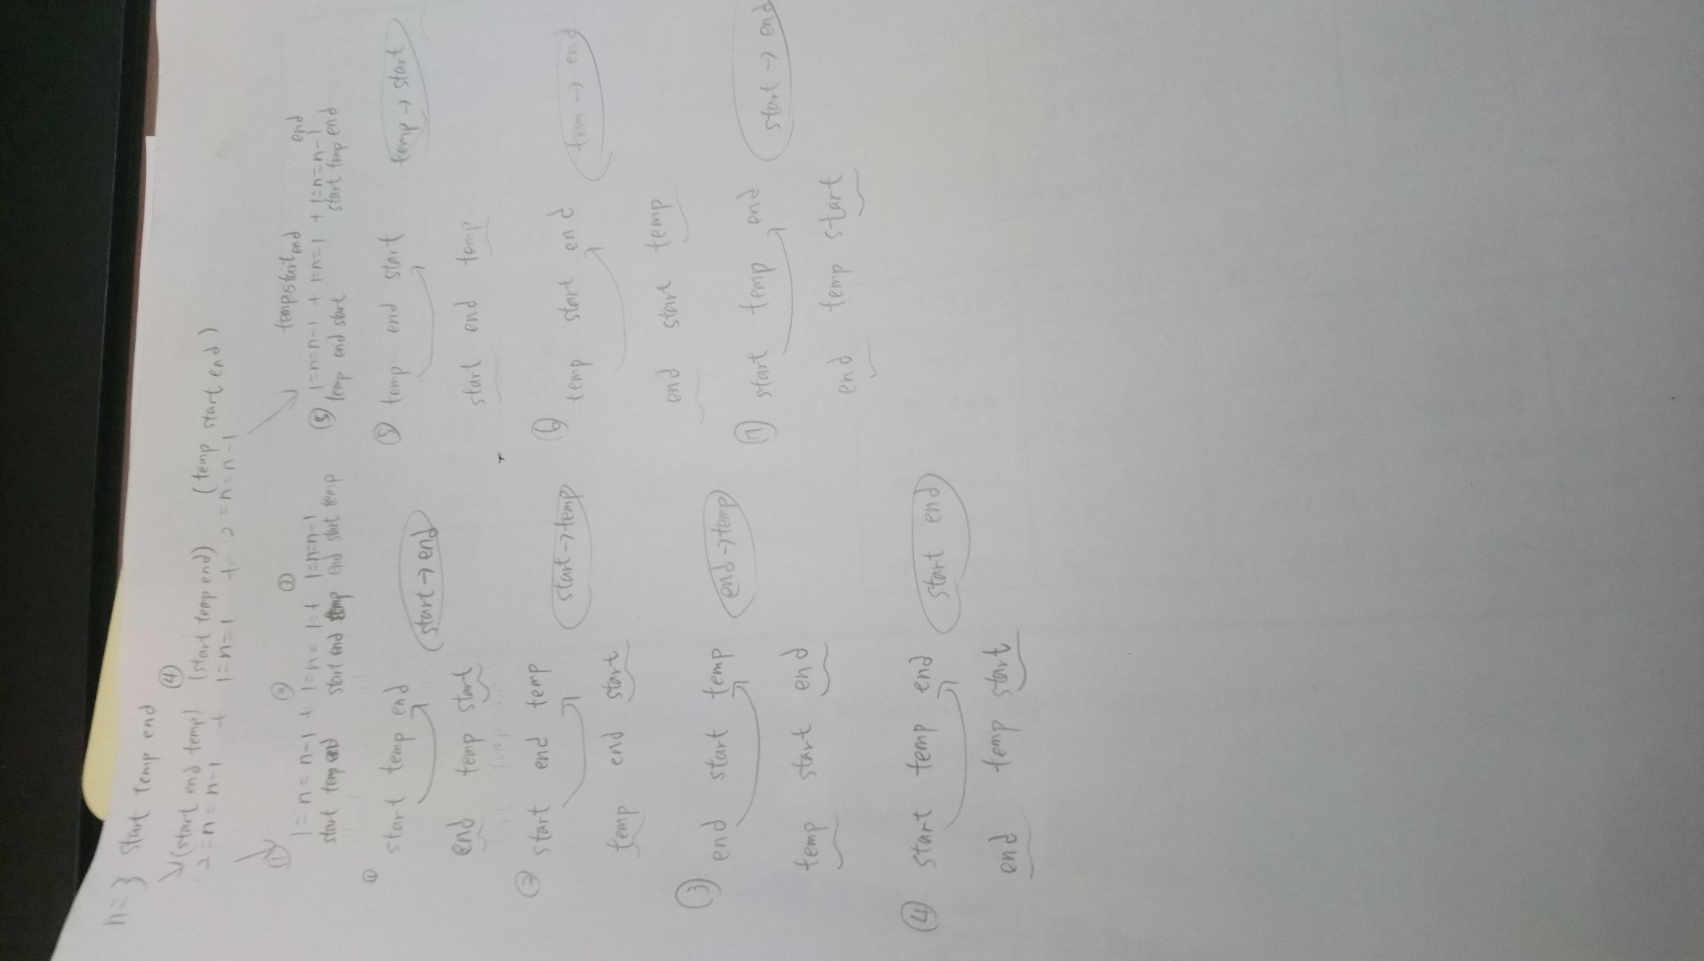 n=3 start temp end
④
(start end temp) (start temp end) (temp start end)
2=n=n-1 + 1=n=1 + 2=n=n-1
① ② ③
1=n=n-1 + 1=n=1 + 1=n=n-1
start temp end start end temp end start temp
temp start end end
⑤ 1=n=n-1 + 1=n=1 + 1=n=n-1
temp end start start temp end
① start temp end start→end
end temp start
② start end temp start→temp
temp end start
③ end start temp end→temp
temp start end
④ start temp end start end
end temp start
⑤ temp end start temp→start
start end temp
⑥ temp start end tem→end
end start temp
⑦ start temp end start→end
end temp start